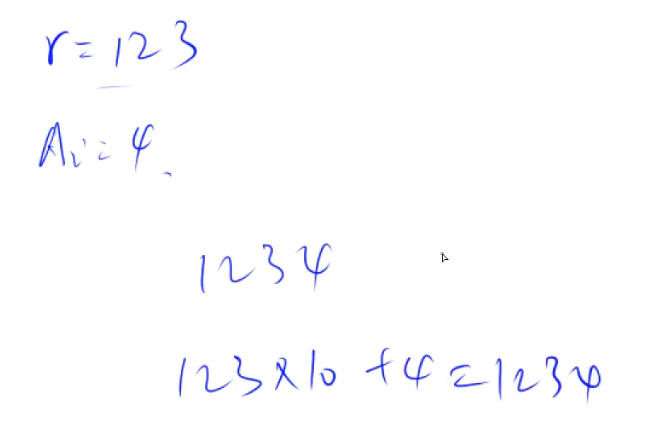 r=123
Ai=4.
1234
123×10+4=1234